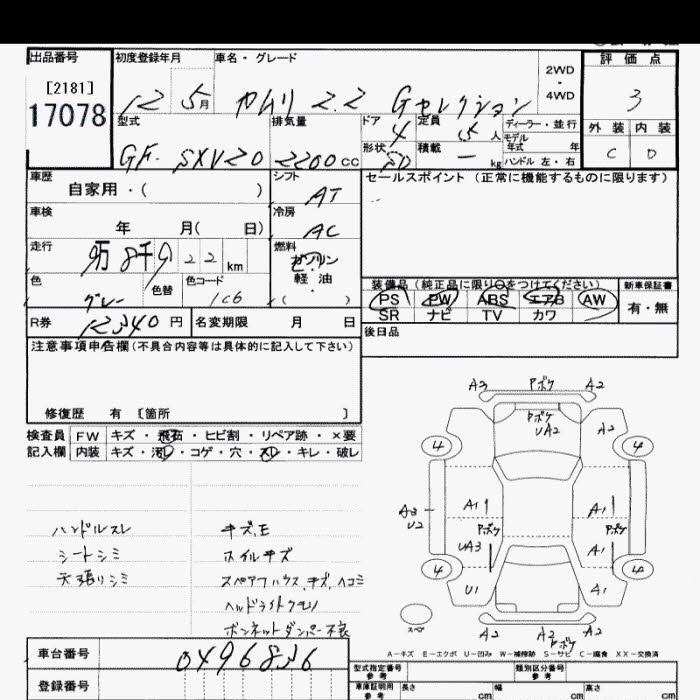 出品番号 初度登録年月 車名・グレード 2WD・4WD 評価点
[2181]
17078
12 5月 カムリ 2.2 Gセレクション 3
型式 排気量 ドア 4 定員 5人 ディーラー・並行 外装 内装
GF- SXV20 2200cc 形状 SD 積載 ー kg モデル年式 年 ハンドル 左・右 C D
車歴 シフト セールスポイント (正常に機能するものに限ります)
自家用・( ) AT
車検 冷房
年 月( 日) AC
走行 燃料
9万8千9 2 2 km ガソリン
軽油
( ・ )
色 色替 色コード
グレー 1C6
装備品 (純正品に限り○をつけてください) 新車保証書
PS PW ABS エアB AW 有・無
SR ナビ TV カワ
R券 12340円 名変期限 月 日 後日品
注意事項申告欄(不具合内容等は具体的に記入して下さい)
修復歴 有 〔箇所 〕
検査員 FW キズ・飛石・ヒビ割・リペア跡・×要
記入欄 内装 キズ・汚レ・コゲ・穴・スレ・キレ・破レ
ハンドルスレ キズ,E
シートシミ ホイルキズ
天張りシミ スペアフハウス,キズ,ヘコミ
ヘッドライトクモリ
ボンネットダンパー不良
A3 Pボケ A2
Pボケ
UA2 A2
4 4
A3 U2 A1 Pボケ A1 Pボケ
UA3 A1
4 4
U1 A1
スペア A2 A2 Pボケ A2
A-キズ E-エクボ U-凹み W-補修跡 S-サビ C-腐食 XX-交換済
車台番号 0496836 型式指定番号 参考 類別区分番号 参考
登録番号 車庫証明用 参考 長さ cm 幅 cm 高さ cm